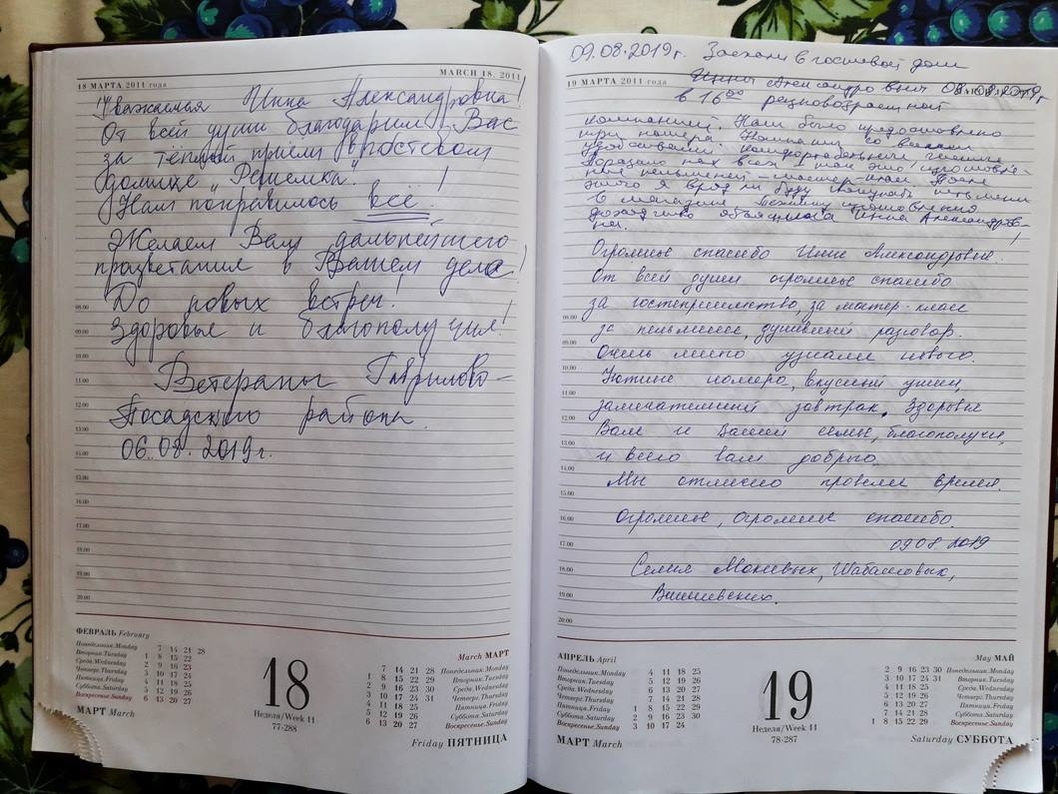 MARCH 18, 2011
18 МАРТА 2011 года
Уважаемая Инна Александровна!
От всей души благодарим Вас
за тёплый приём в гостевом
домике „Решемка".
Нам понравилось всё!
Желаем Вам дальнейшего
процветания в Вашем деле!
До новых встреч!
Здоровья и благополучия!
Ветераны Гаврилово-
Посадского района.
06.08.2019г.
08.00
09.00
10.00
11.00
12.00
13.00
14.00
15.00
16.00
17.00
18.00
19.00
20.00
ФЕВРАЛЬ February
Понедельник.Monday 7 14 21 28
Вторник.Tuesday 1 8 15 22
Среда.Wednesday 2 9 16 23
Четверг.Thursday 3 10 17 24
Пятница.Friday 4 11 18 25
Суббота.Saturday 5 12 19 26
Воскресенье.Sunday 6 13 20 27
МАРТ March
18
Неделя/Week 11
77-288
March МАРТ
7 14 21 28 Понедельник.Monday
1 8 15 22 29 Вторник.Tuesday
2 9 16 23 30 Среда.Wednesday
3 10 17 24 31 Четверг.Thursday
4 11 18 25 Пятница.Friday
5 12 19 26 Суббота.Saturday
6 13 20 27 Воскресенье.Sunday
Friday ПЯТНИЦА
09.08.2019г. Заехали в гостевой дом
19 МАРТА 2011 года
Инны Александровны 08.08.2019г
в 16 00 разновозрастной
компанией. Нам было предоставлено
три номера. Комнаты со всеми
удобствами, комфортабельные,
Поразило нас всех
пельменей – мастер-класс. После
этого я вряд ли буду покупать пельмени
в магазине. Технику приготовления
доходчиво объяснила Инна Александров-
на.
Огромное спасибо Инне Александровне!
От всей души огромное спасибо
за гостеприимство, за мастер-класс
за пельмени, душевный разговор.
Очень много узнали нового.
Уютные номера, вкусный ужин,
замечательный завтрак. Здоровья
Вам и Вашей семье, благополучия,
и всего вам доброго.
Мы отлично провели время.
Огромное, огромное спасибо.
09 08 2019
Семья
08.00
09.00
10.00
11.00
12.00
13.00
14.00
15.00
16.00
17.00
18.00
19.00
20.00
АПРЕЛЬ April
Понедельник.Monday 4 11 18 25
Вторник.Tuesday 5 12 19 26
Среда.Wednesday 6 13 20 27
Четверг.Thursday 7 14 21 28
Пятница.Friday 1 8 15 22 29
Суббота.Saturday 2 9 16 23 30
Воскресенье.Sunday 3 10 17 24
МАРТ March
19
Неделя/Week 11
78-287
May МАЙ
2 9 16 23 30 Понедельник.Monday
3 10 17 24 31 Вторник.Tuesday
4 11 18 25 Среда.Wednesday
5 12 19 26 Четверг.Thursday
6 13 20 27 Пятница.Friday
7 14 21 28 Суббота.Saturday
1 8 15 22 29 Воскресенье.Sunday
Saturday СУББОТА